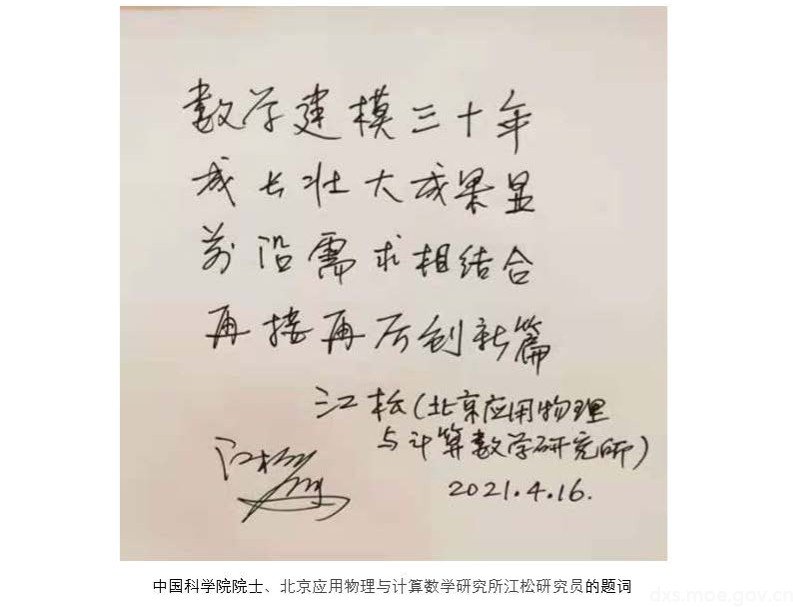 数学建模三十年
成长壮大成果显
前沿需求相结合
再接再厉创新篇
江松(北京应用物理
与计算数学研究所)
江松
2021.4.16.
中国科学院院士、北京应用物理与计算数学研究所江松研究员的题词
dxs.moe.gov.cn